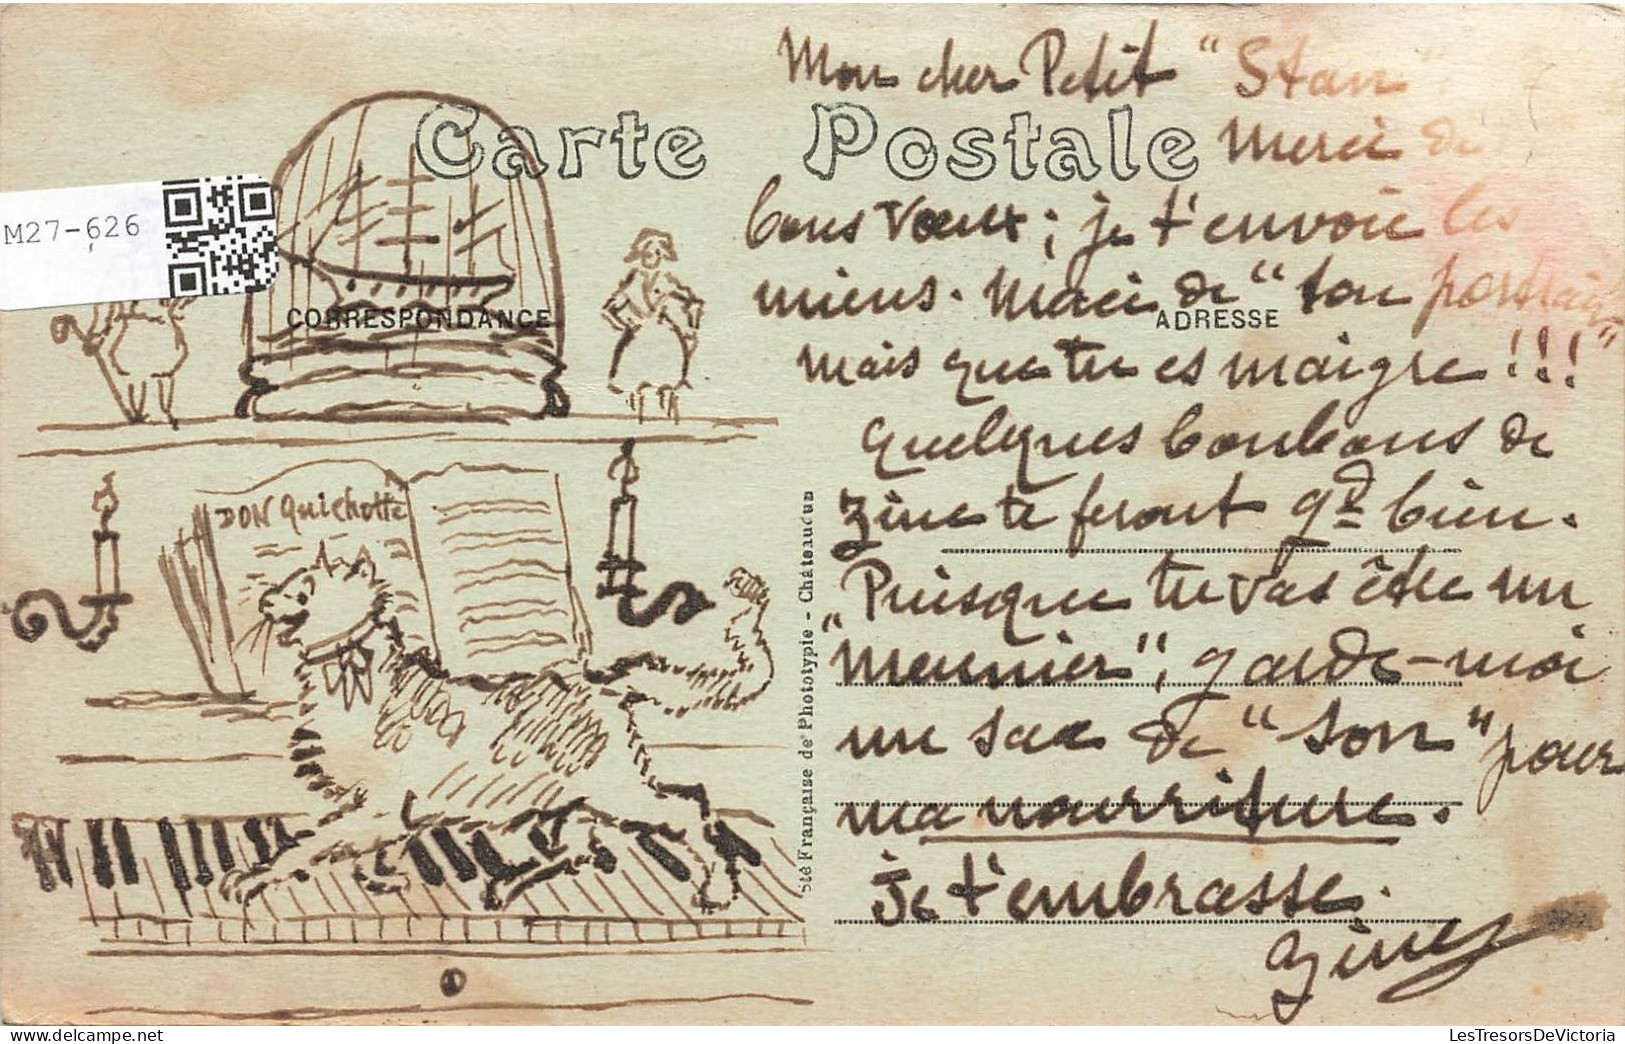 Mon cher Petit "Stan"
Carte Postale
Merci de
bons vœux ; je t'envoie les
miens. Merci de "ton portrait"
mais que tu es maigre !!!
Quelques bonbons de
Zine te feront gd bien.
Puisque tu vas être un
"Meunier", garde-moi
un sac de "son" pour
ma nourriture.
Je t'embrasse.
Zine
M27-626
CORRESPONDANCE
ADRESSE
DON Quichotte
Sté Française de Phototypie - Châteaudun
LesTresorsDeVictoria